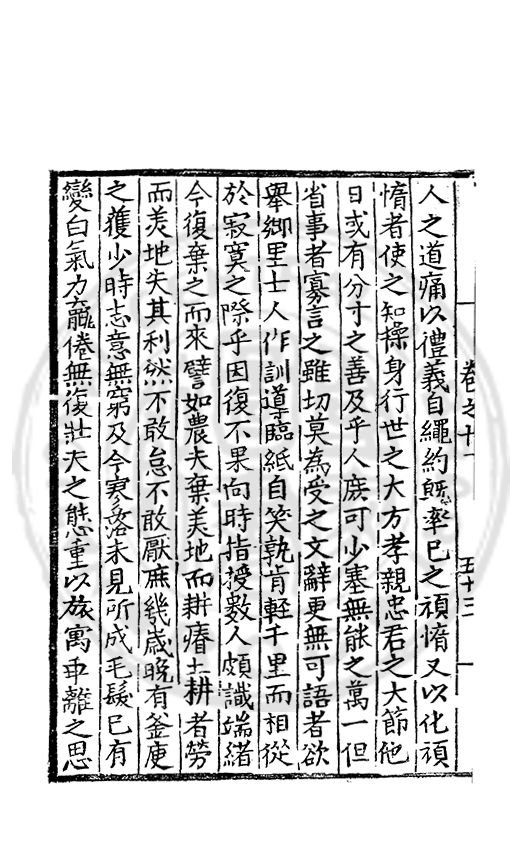 人之道痛以禮義自繩約旣率已之頑惰又以化頑
惰者使之知操身行世之大方孝親忠君之大節他
日或有分寸之善及乎人庶可少塞無能之萬一但
省事者寡言之雖切莫為受之文辭更無可語者欲
舉鄉里士人作訓導臨紙自笑孰肯輕千里而相從
於寂寞之際乎因復不果向時指授數人頗識端緒
今復棄之而來譬如農夫棄美地而耕瘠土耕者勞
而美地失其利然不敢怠不敢厭庶幾歲晚有釜庾
之獲少時志意無窮及今寥落未見所成毛髮已有
變白氣力羸倦無復壯夫之態重以旅寓乖離之思
卷之十一
五十三